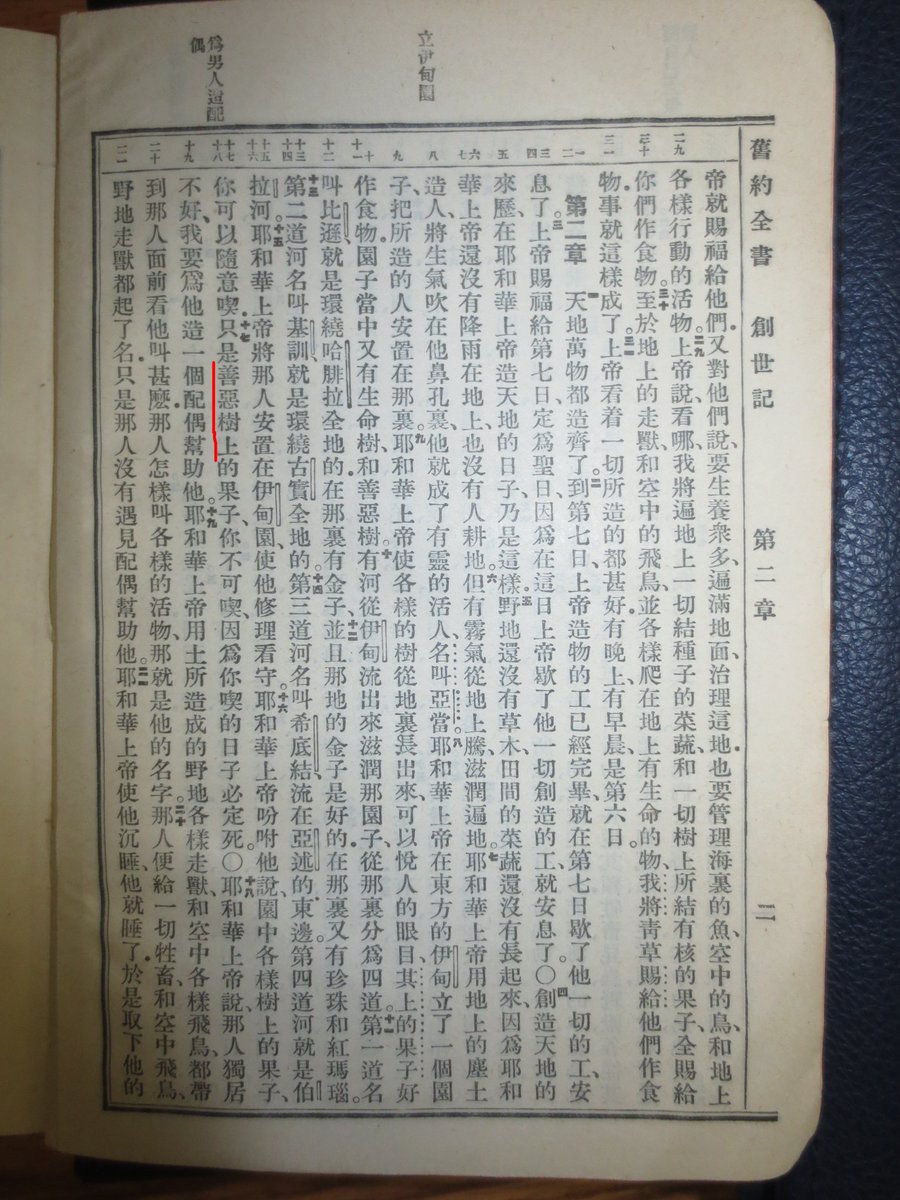 立伊甸園
爲男人造配
偶
舊約全書 創世記 第二章 二
二九
三十
三一
一
二
三
四
五
六
七
八
九
十
十一
十二
十三
十四
十五
十六
十七
十八
十九
二十
二一
帝就賜福給他們、又對他們說、要生養衆多、遍滿地面、治理這地、也要管理海裏的魚、空中的鳥、和地上
各樣行動的活物。二九上帝說、看哪、我將遍地上一切結種子的菜蔬、和一切樹上所結有核的果子、全賜給
你們作食物。三十至於地上的走獸、和空中的飛鳥、並各樣爬在地上有生命的物、我將靑草賜給他們作食
物、事就這樣成了。三一上帝看着一切所造的都甚好、有晚上、有早晨、是第六日。
第二章 一天地萬物都造齊了。二到第七日、上帝造物的工已經完畢、就在第七日歇了他一切的工、安
息了。三上帝賜福給第七日、定爲聖日、因爲在這日上帝歇了他一切創造的工、就安息了。○四創造天地的
來歷、在耶和華上帝造天地的日子、乃是這樣。五野地還沒有草木、田間的菜蔬還沒有長起來、因爲耶和
華上帝還沒有降雨在地上、也沒有人耕地。六但有霧氣從地上騰、滋潤遍地。七耶和華上帝用地上的塵土
造人、將生氣吹在他鼻孔裏、他就成了有靈的活人、名叫亞當。八耶和華上帝在東方的伊甸立了一個園
子、把所造的人安置在那裏。九耶和華上帝使各樣的樹從地裏長出來、可以悅人的眼目、其上的果子好
作食物、園子當中又有生命樹、和善惡樹。十有河從伊甸流出來滋潤那園子、從那裏分爲四道。十一第一道名
叫比遜、就是環繞哈腓拉全地的、在那裏有金子、十二並且那地的金子是好的、在那裏又有珍珠和紅瑪瑙。
十三第二道河名叫基訓、就是環繞古實全地的。十四第三道河名叫希底結、流在亞述的東邊。第四道河就是伯
拉河。十五耶和華上帝將那人安置在伊甸園、使他修理看守。十六耶和華上帝吩咐他說、園中各樣樹上的果子、
你可以隨意喫、十七只是善惡樹上的果子、你不可喫、因爲你喫的日子必定死。○十八耶和華上帝說、那人獨居
不好、我要爲他造一個配偶幫助他。十九耶和華上帝用土所造成的野地各樣走獸、和空中各樣飛鳥、都帶
到那人面前看他叫甚麽、那人怎樣叫各樣的活物、那就是他的名字。二十那人便給一切牲畜、和空中飛鳥、
野地走獸都起了名、只是那人沒有遇見配偶幫助他。二一耶和華上帝使他沉睡、他就睡了、於是取下他的